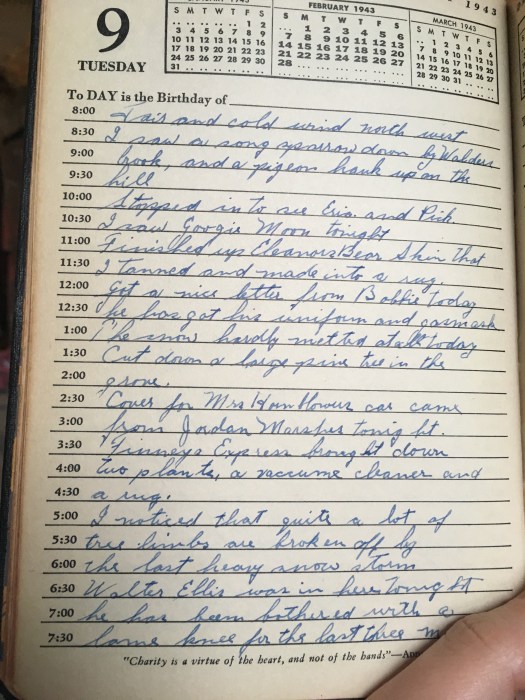 1943
9
TUESDAY
JANUARY 1943
S M T W T F S
.. .. .. .. .. 1 2
3 4 5 6 7 8 9
10 11 12 13 14 15 16
17 18 19 20 21 22 23
24 25 26 27 28 29 30
31 .. .. .. .. .. ..
FEBRUARY 1943
S M T W T F S
.. 1 2 3 4 5 6
7 8 9 10 11 12 13
14 15 16 17 18 19 20
21 22 23 24 25 26 27
28 .. .. .. .. .. ..
MARCH 1943
S M T W T F S
.. 1 2 3 4 5 6
7 8 9 10 11 12 13
14 15 16 17 18 19 20
21 22 23 24 25 26 27
28 29 30 31 .. .. ..
To DAY is the Birthday of
8:00 Fair and cold wind north west
8:30 I saw a song sparrow down by Walders
9:00 brook, and a pigeon hauk up on the
9:30 hill
10:00 Stopped in to see Eria. and Pick
10:30 I saw Googie Moon tonight
11:00 Finished up Eleanors Bear Skin that
11:30 I tanned and made into a rug.
12:00 Got a nice letter from Bobbie today
12:30 he has got his uniform and gasmask
1:00 The snow hardly melted atall today
1:30 Cut down a large pine tree in the
2:00 grove.
2:30 Cover for Mrs car came
3:00 from Jordan Marshes tonight.
3:30 Finneys Express brought down
4:00 two plants, a vaccume cleaner and
4:30 a rug.
5:00 I noticed that quite a lot of
5:30 tree limbs are broken off by
6:00 the last heavy snow storm
6:30 Walter Ellis was in here tonight
7:00 he has been bothered with a
7:30 lame knee for the last three m
"Charity is a virtue of the heart, and not of the hands"—